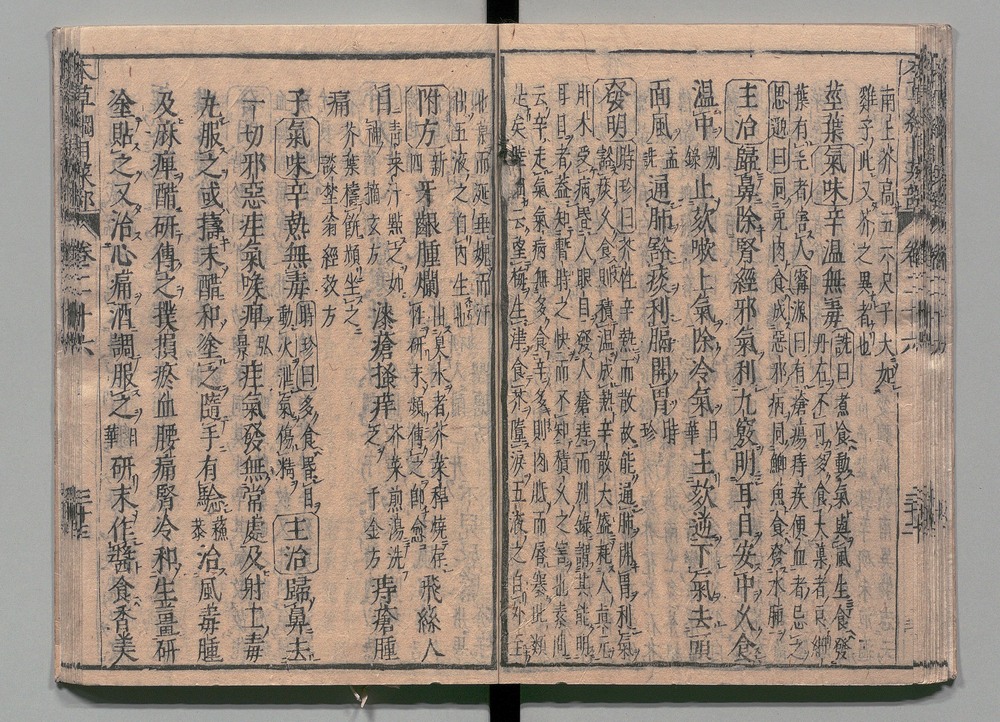 南土芥高五六尺子大如
雞子此又芥之異者也
莖葉氣味辛溫無毒詵曰煮食動氣與風生食發
丹石不可多食大葉者良細
葉有毛者害人寗源曰有瘡瘍痔疾便血者忌之
思邈曰同兔肉食成惡邪病同鯽魚食發水腫
主治歸鼻除腎經邪氣利九竅明耳目安中久食
溫中別錄止欬嗽上氣除冷氣日華主欬逆下氣去頭
面風孟詵通肺豁痰利膈開胃時珍
發明時珍曰芥性辛熱而散故能通肺開胃利氣
豁痰久食則積溫成熱辛散太盛耗人真元
肝木受病昏人眼目發人瘡痔而別錄謂其能明
耳目者蓋知暫時之快而不知積久之害也素問
云辛走氣氣病無多食辛多食辛則肉胝而唇褰此類
是矣陸佃云望梅生津食芥墮淚五液之自外至
也慕而涎垂媿而汗
出五液之自內生也
附方新四牙齦腫爛出臭水者芥菜稈燒存
性研末頻傅之即愈飛絲入
目青菜汁點之如神摘玄方漆瘡搔痒芥菜煎湯洗之千金方痔瘡腫
痛芥葉搗餅頻坐之
談埜翁經效方
子氣味辛熱無毒時珍曰多食昏目
動火泄氣傷精主治歸鼻去
一切邪惡疰氣喉痺弘景疰氣發無常處及射工毒
丸服之或擣末醋和塗之隨手有驗蘇恭治風毒腫
及麻痺醋研傅之撲損瘀血腰痛腎冷和生薑研
塗貼之又治心痛酒調服之日華研末作醬食香美